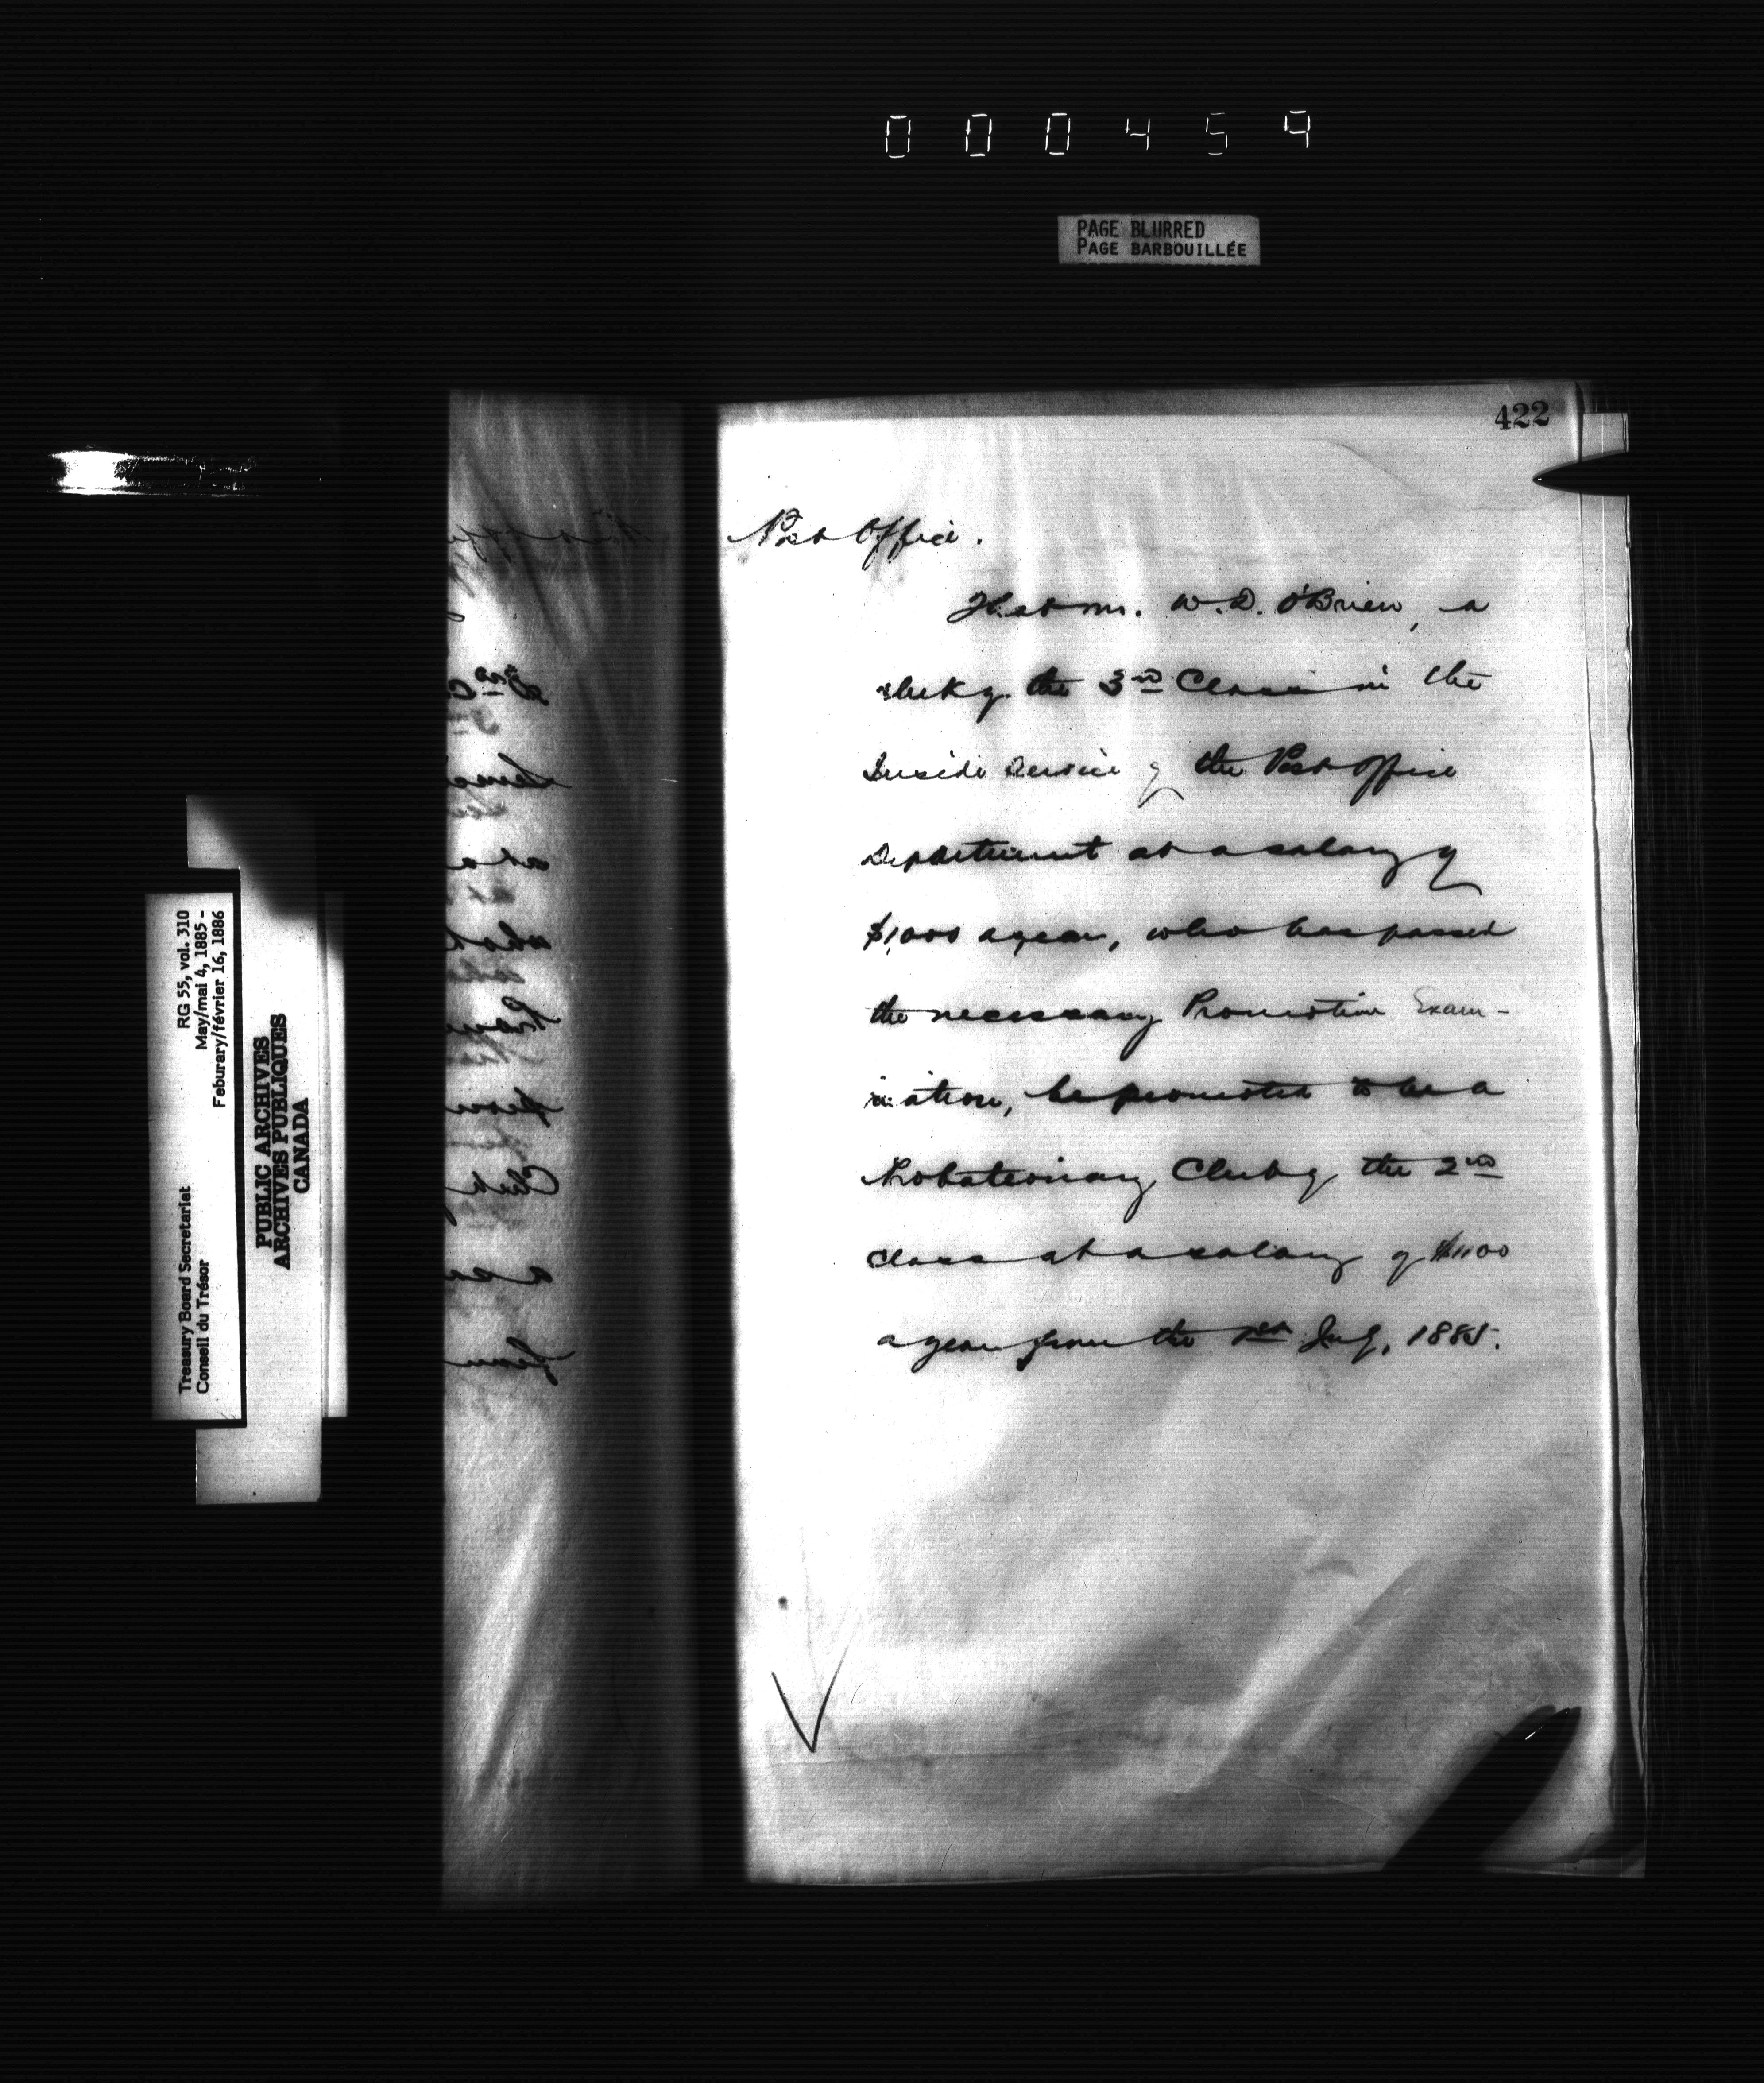 000459
PAGE BLURRED
PAGE BARBOUILLÉE
422
Post Office.
That Mr. W. D. O'Brien, a
clerk of the 3rd Class in the
Inside Service of the Post Office
Department at a salary of
$1,000 a year, who has passed
the necessary Promotion Exam-
ination, be promoted to be a
Probationary Clerk of the 2nd
Class at a salary of $1100
a year from the 1st July, 1885.
RG 55, vol. 310
May/mai 4, 1885 -
Feburary/février 16, 1886
Treasury Board Secretariat
Conseil du Trésor
PUBLIC ARCHIVES
ARCHIVES PUBLIQUES
CANADA